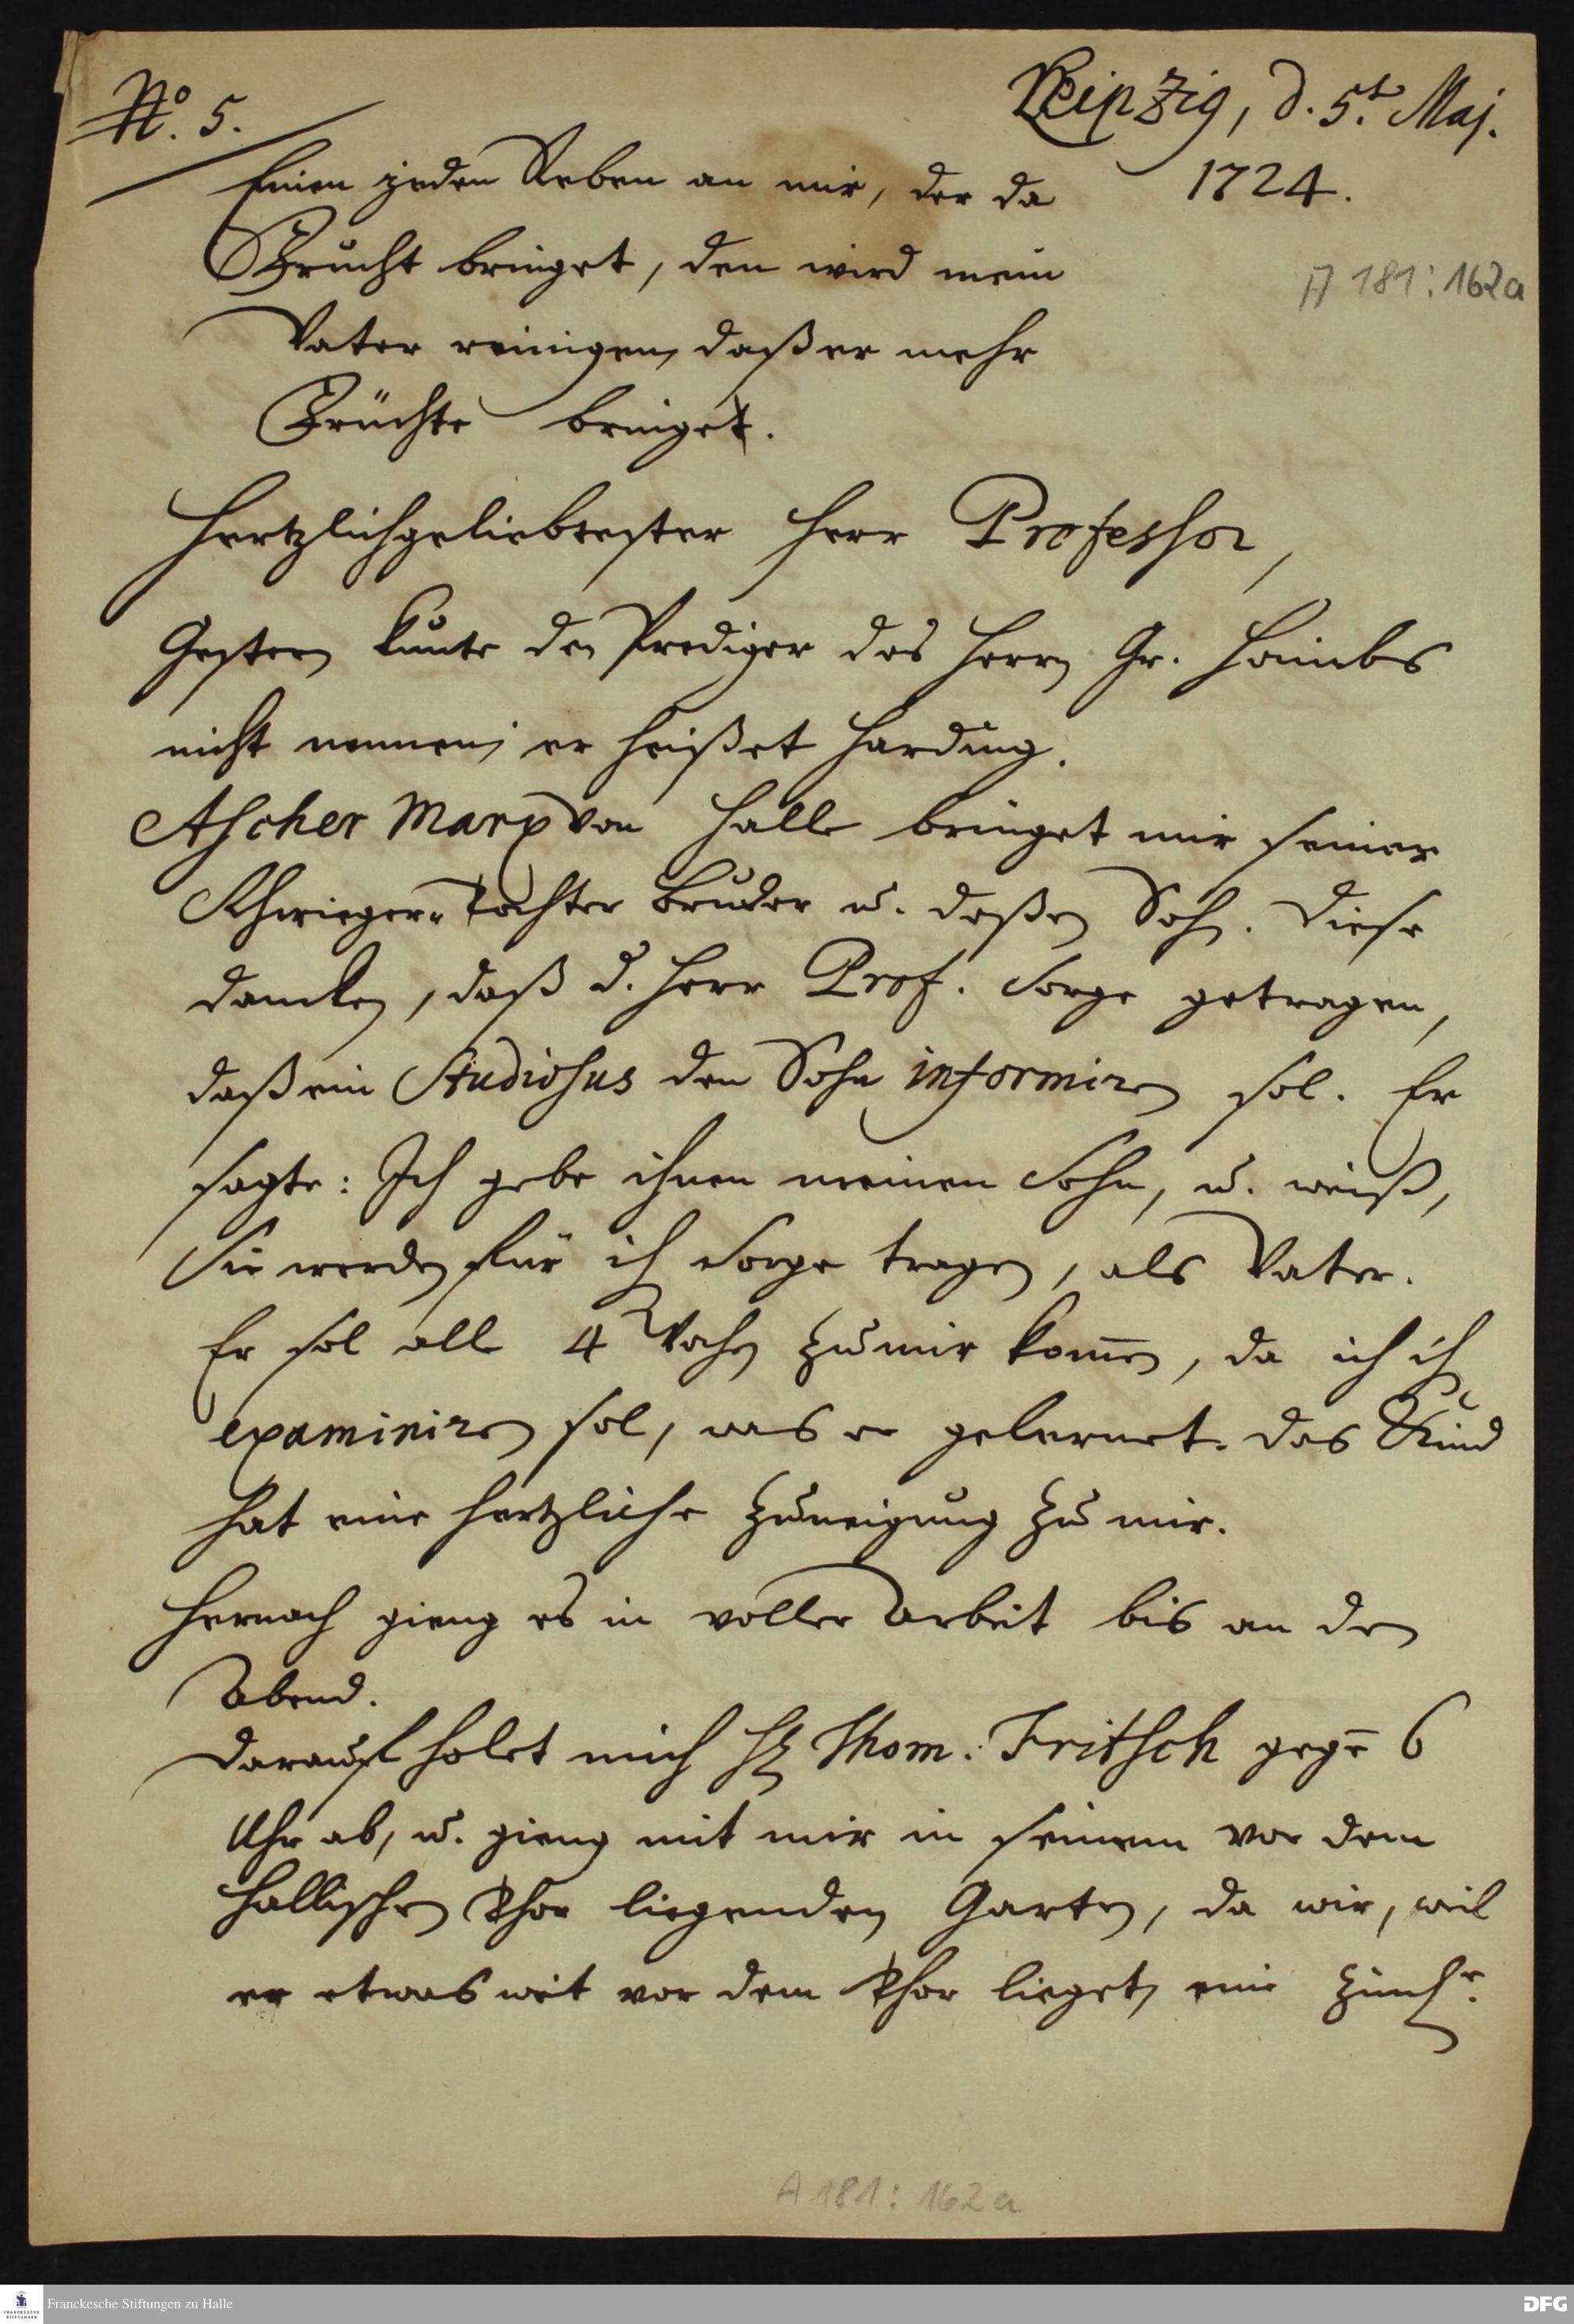 No. 5.
Leipzig, d. 5t. Maj.
1724.
Einen jeden Reben an mir, der da
Frucht bringet, den wird mein
Vater reinigen, daß er mehr
Früchte bringet.
A 181:162a
Hertzlichgeliebtester Herr Professor,
Gestern kunte den Prediger des Herrn Gr. Hoimbs
nicht nennen; er heißet Harding.
Ascher Marx von Halle bringet mir seiner
Schwieger-Tochter Bruder u. deßen Sohn. Diese
dancken, daß d. Herr Prof. Sorge getragen,
daß ein Studiosus den Sohn informiren sol. Er
sagte: Ich gebe ihnen meinen Sohn, u. weiß,
Sie werden für ihn Sorge tragen, als Vater.
Er sol alle 4 Wochen zu mir kom̄en, da ich ihn
examiniren sol, was er gelernet. Das Kind
hat eine hertzliche Zuneigung zu mir.
Hernach gieng es in voller Arbeit bis an den
Abend.
Darauf holet mich H. Thom. Fritsch gegen 6
Uhr ab, u. gieng mit mir in seinem vor dem
Hallischen Thor liegenden Garten, da wir, weil
er etwas weit vor dem Thor lieget, eine
A 181:162a
Franckesche Stiftungen zu Halle
DFG